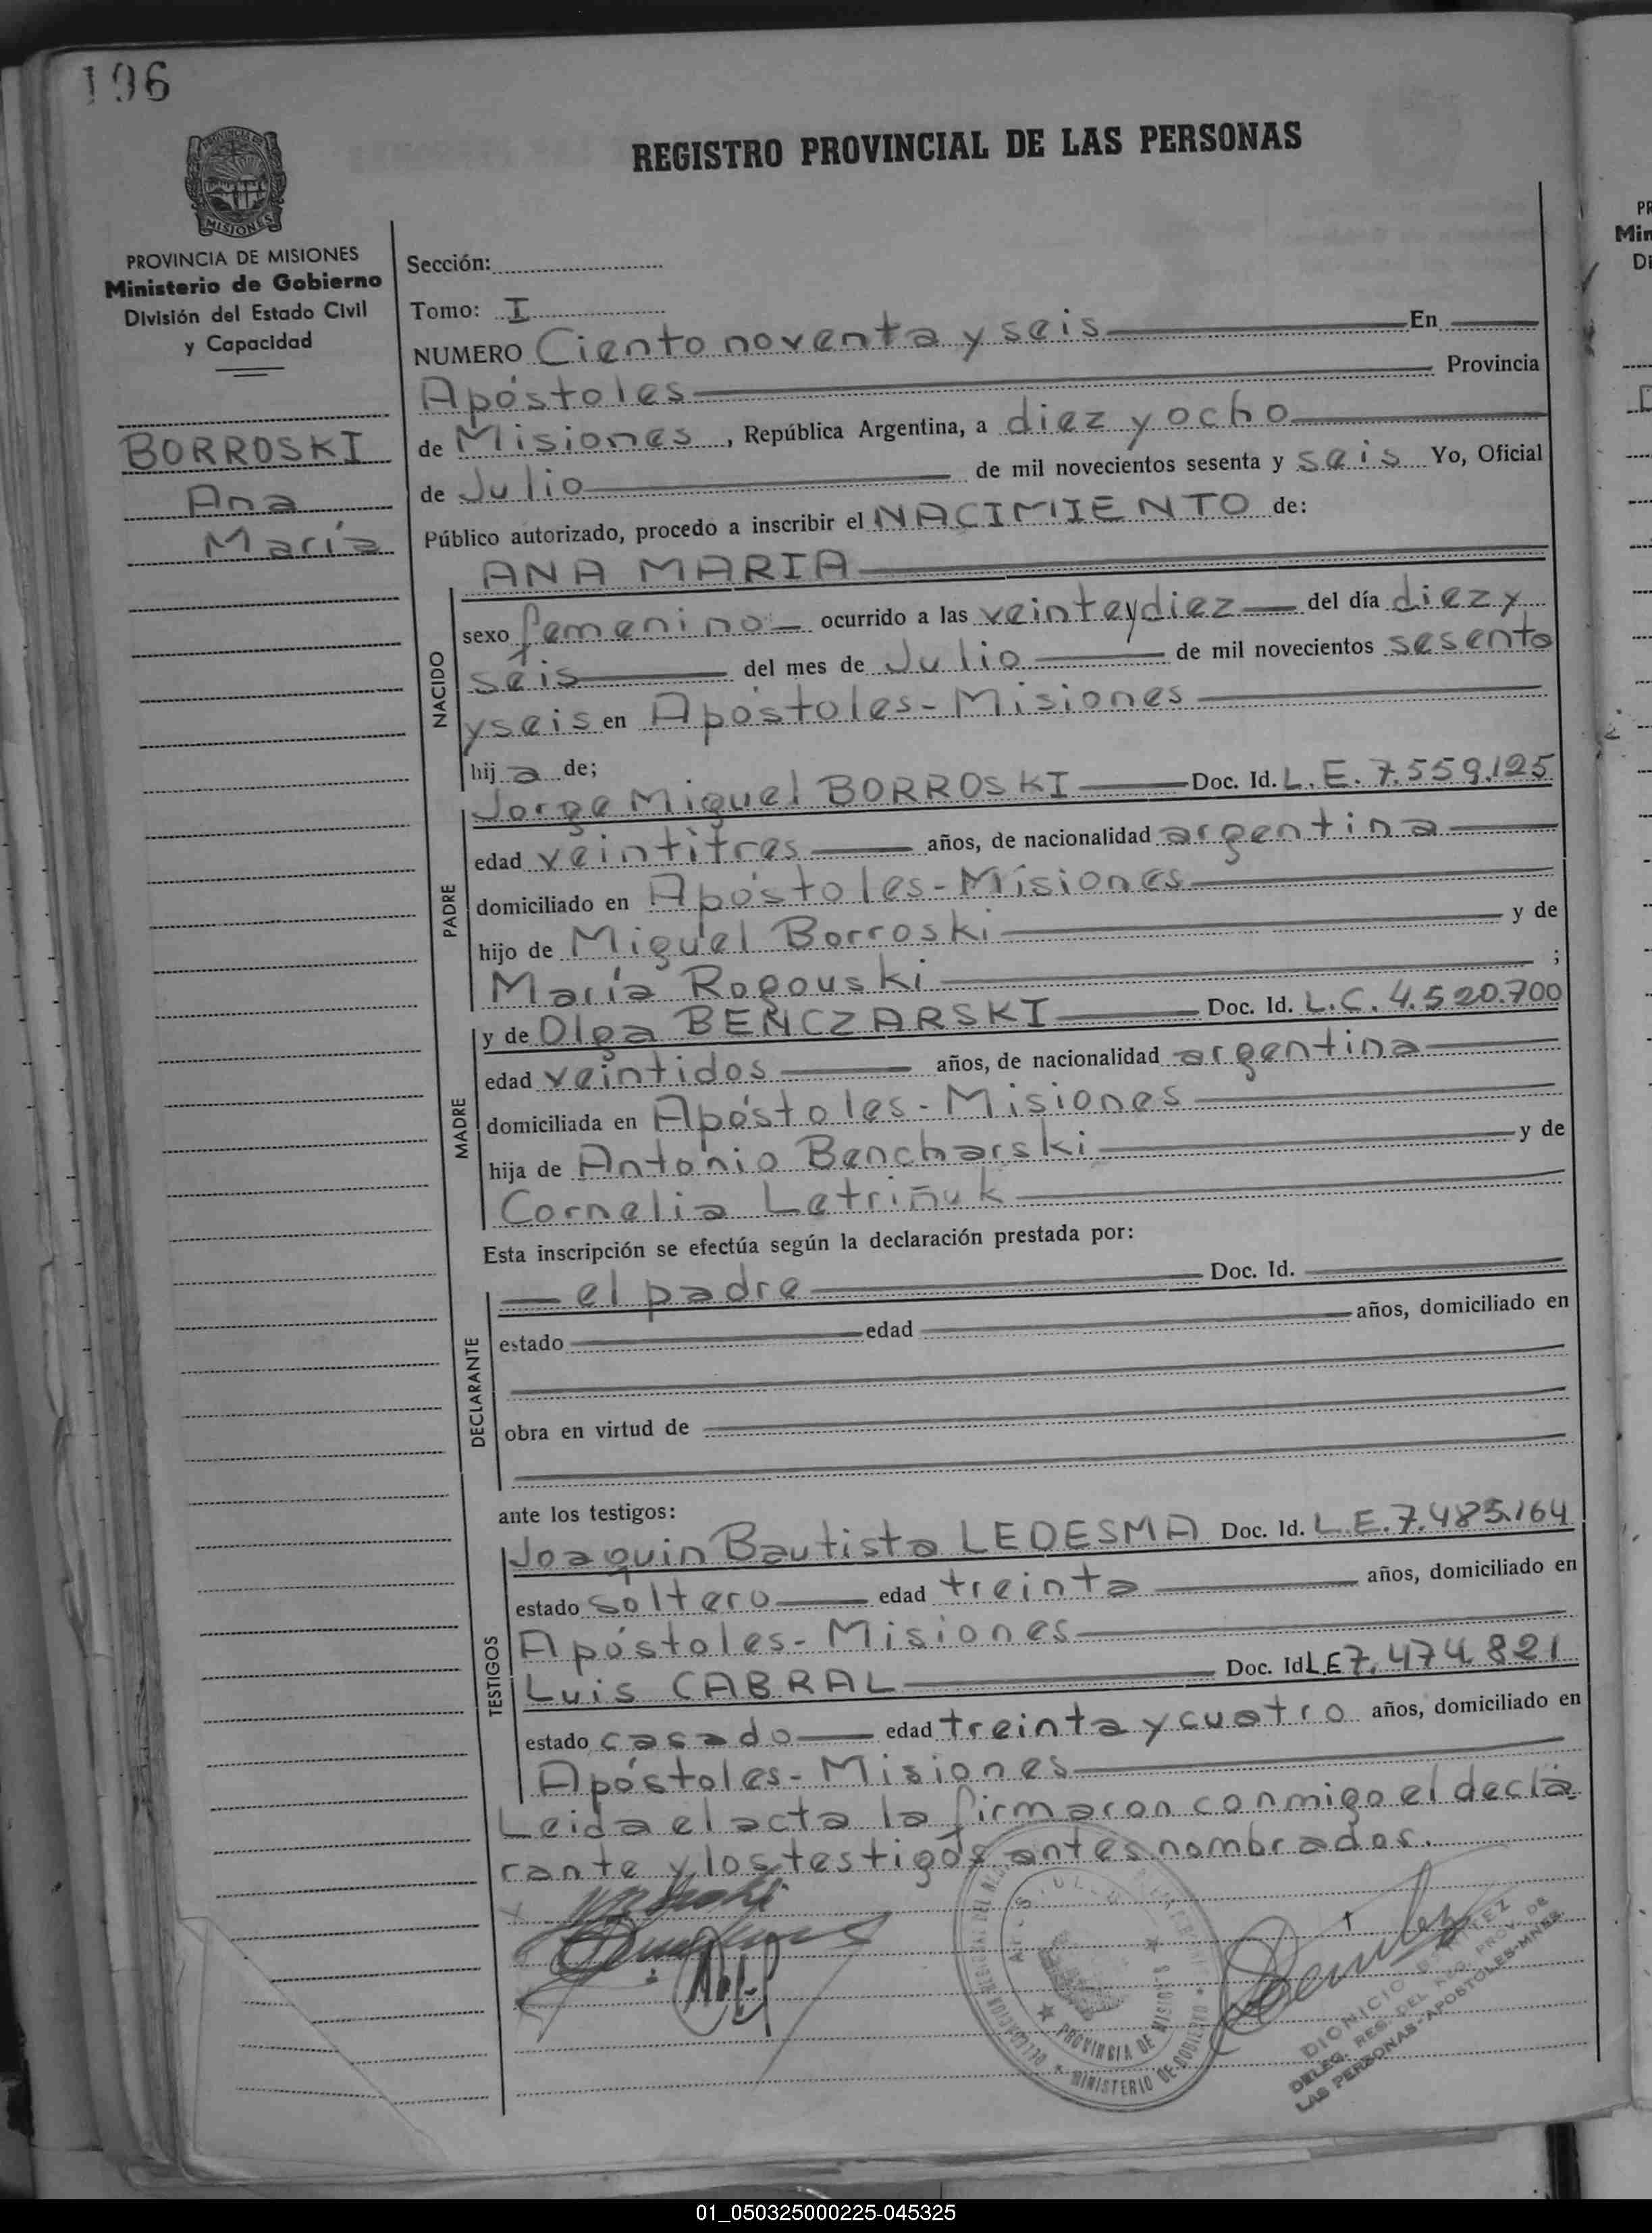 196
REGISTRO PROVINCIAL DE LAS PERSONAS
PROVINCIA DE
MISIONES
PROVINCIA DE MISIONES
Ministerio de Gobierno
División del Estado Civil
y Capacidad
BORROSKI
Ana
María
Sección:
Tomo: I
NUMERO Ciento noventa y seis En
Apóstoles Provincia
de Misiones, República Argentina, a diez y ocho
de Julio de mil novecientos sesenta y seis Yo, Oficial
Público autorizado, procedo a inscribir el NACIMIENTO de:
NACIDO
ANA MARIA
sexo femenino ocurrido a las veinteydiez del día diez y
seis del mes de Julio de mil novecientos sesenta
y seis en Apóstoles-Misiones
hij a de;
PADRE
Jorge Miguel BORROSKI Doc. Id. L.E. 7.559.125
edad veintitres años, de nacionalidad argentina
domiciliado en Apóstoles-Misiones
hijo de Miguel Borroski y de
María Rogouski ;
MADRE
y de Olga BENCZARSKI Doc. Id. L.C. 4.520.700
edad veintidos años, de nacionalidad argentina
domiciliada en Apóstoles-Misiones
hija de Antonio Bencharski y de
Cornelia Letriñuk
Esta inscripción se efectúa según la declaración prestada por:
DECLARANTE
el padre Doc. Id.
estado edad años, domiciliado en
obra en virtud de
ante los testigos:
TESTIGOS
Joaquin Bautista LEDESMA Doc. Id. L.E. 7.485.164
estado soltero edad treinta años, domiciliado en
Apóstoles-Misiones
Luis CABRAL Doc. Id L.E 7.474.821
estado casado edad treinta y cuatro años, domiciliado en
Apóstoles-Misiones
Leida el acta la firmaron conmigo el decla
rante y los testigos antes nombrados.
PROVINCIA DE MISIONES
MINISTERIO DE GOBIERNO
DIONICIO
DELEG. REG. DEL REG. PROV. DE
LAS PERSONAS-APOSTOLES-MNES.
01_050325000225-045325